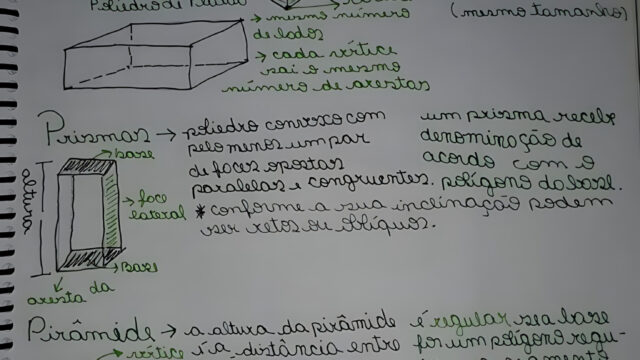 Poliedro de Platão
→ mesmo número
de lados
→ cada vértice
sai o mesmo
número de arestas
(mesmo tamanho)
Prismas → poliedro convexo com
pelo menos um par
de faces opostas
paralelas e congruentes.
* conforme a sua inclinação podem
ser retos ou oblíquos.
um prisma recebe
denominação de
acordo com o
polígono da base.
base
altura
face
lateral
Base
aresta da
Pirâmide → a altura da pirâmide
é a distância entre
é regular se a base
for um polígono regu-
vértice